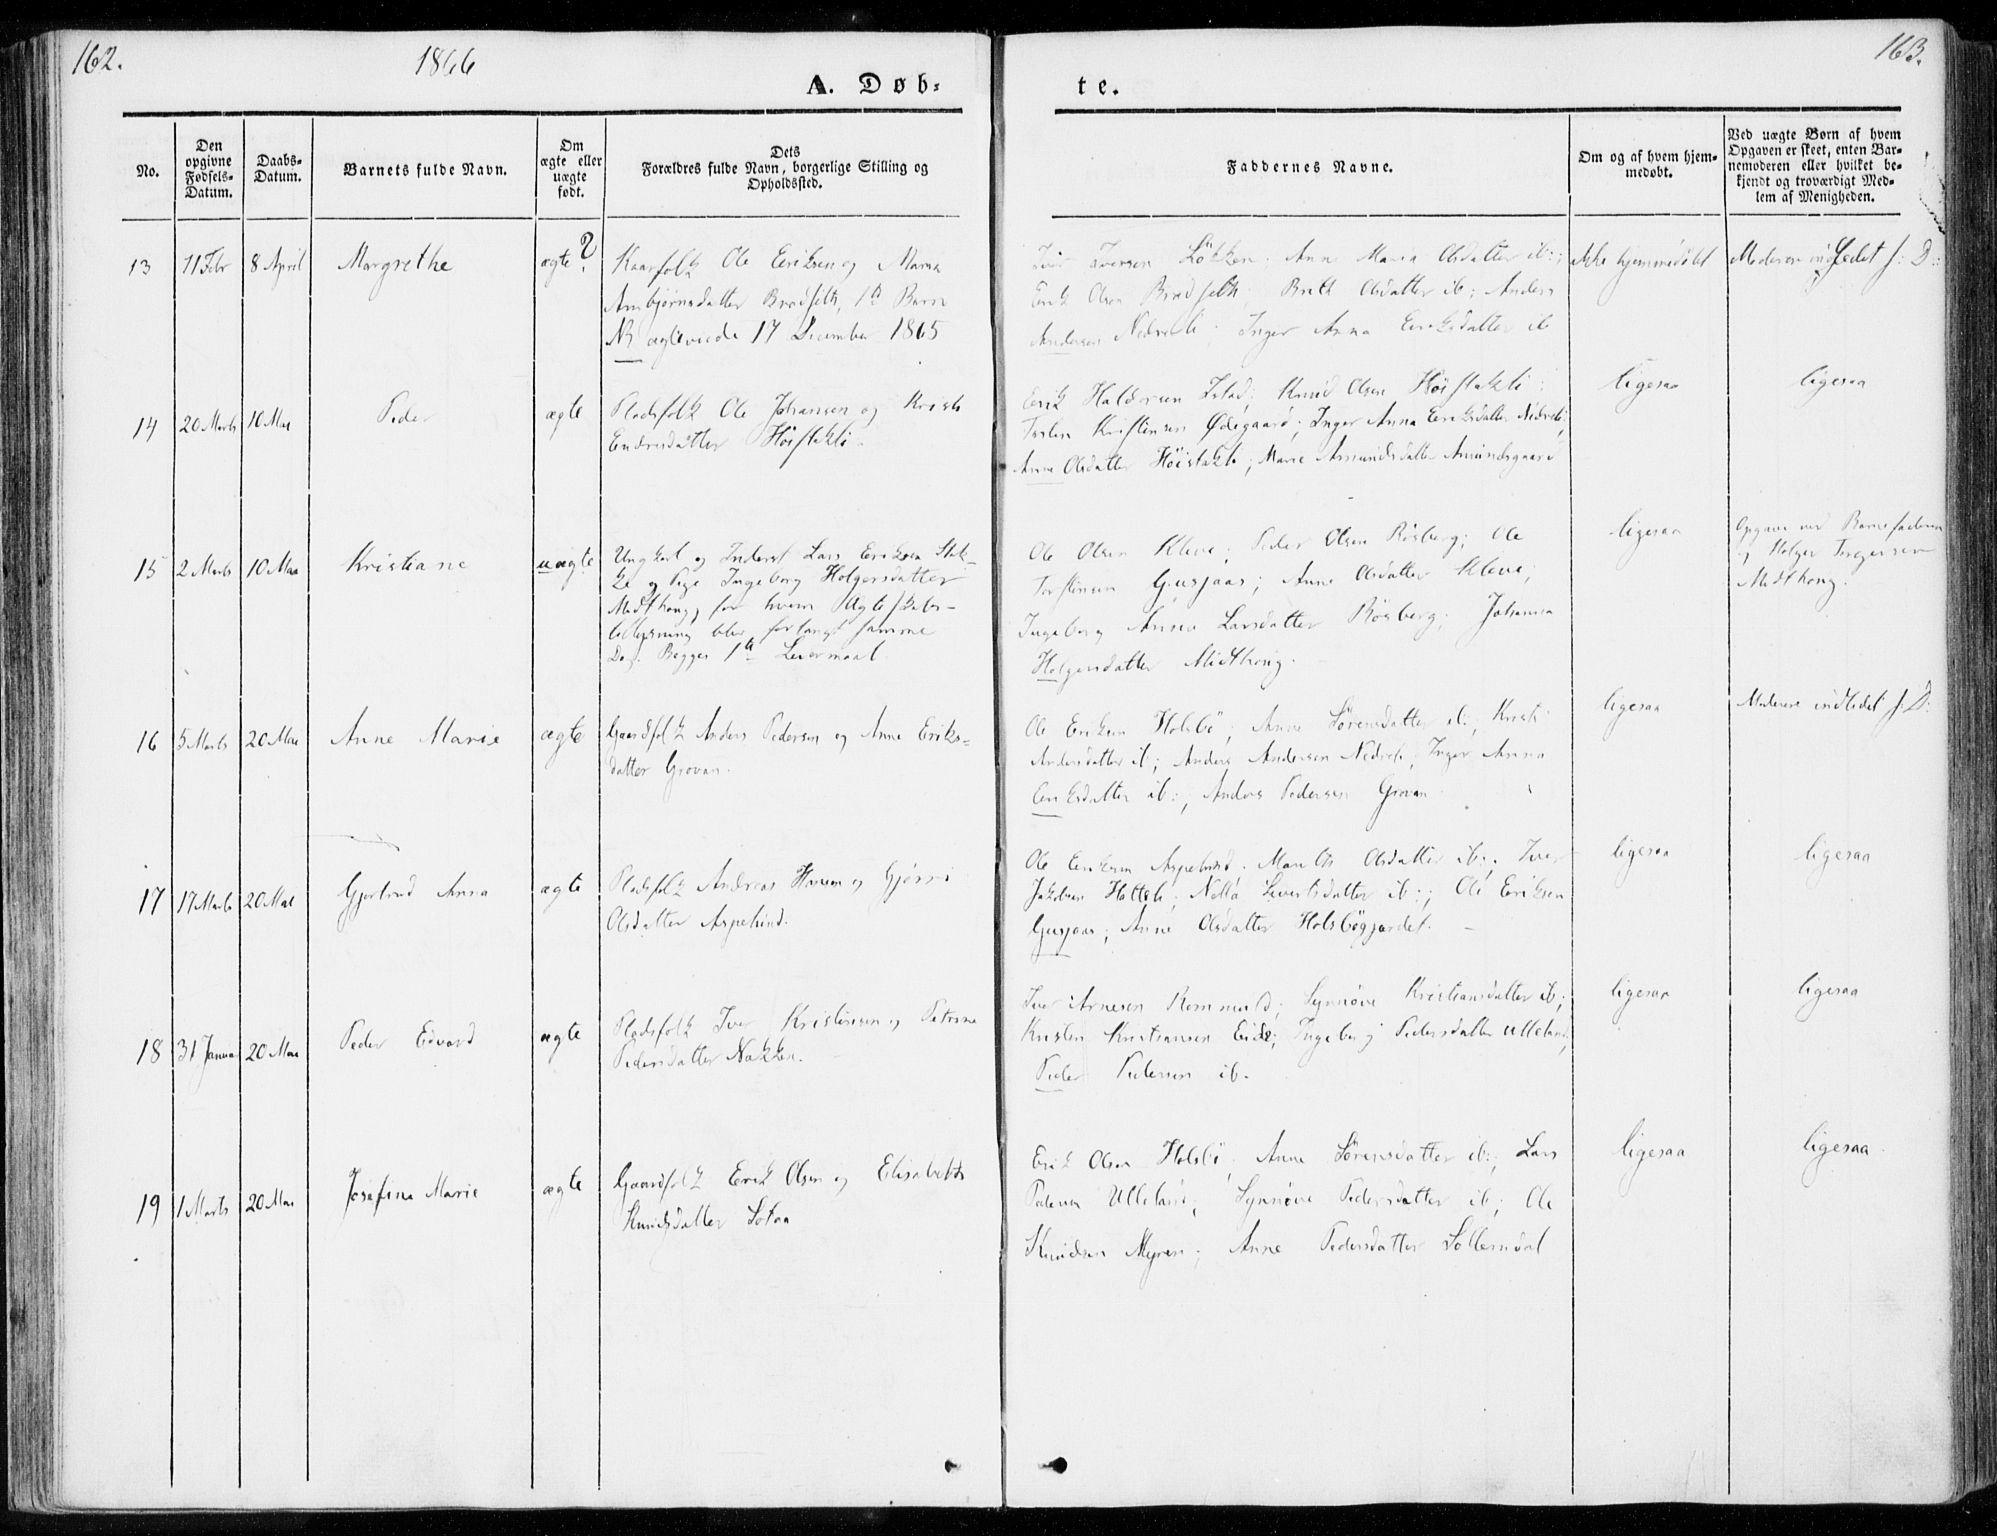 162.
1866
A. Døb-
te.
163.
No.
Den
opgivne
Fødsels-
Datum.
Daabs-
Datum.
Barnets fulde Navn.
Om
ægte eller
uægte
født.
Dets
Forældres fulde Navn, borgerlige Stilling og
Opholdssted.
Faddernes Navne.
Om og af hvem hjem-
medøbt.
Ved uægte Børn af hvem
Opgaven er skeet, enten Bar-
nemoderen eller hvilket be-
kjendt og troværdigt Med-
lem af Menigheden.
13
11 Febr
8 April
Margrethe
ægte ?
Kaarfolk Ole Eriksen og Maria
Arnbjørnsdatter Bredseth, 1te Barn
NB ægteviede 17 December 1865
Iver Iversen Løkken; Anne Maria Olsdatter ib:;
Erik Olsen Bredseth; Brith Olsdatter ib; Anders
Andersen Nedreli; Inger Anna Eriksdatter ib
ikke hjemmedøbt
Moderen indledet s: D:
14
20 Marts
10 Mai
Peder
ægte
Pladsfolk Ole Johansen og Kristi
Endresdatter Høistakli.
Erik Haldorsen Istad; Knud Olsen Høistakli;
Kristensen Ødegaard; Inger Anna Eriksdatter Nedreli;
Anne Olsdatter Høistakli; Marie Amundsdatter Amundsgaard
ligesaa
ligesaa
15
2 Marts
10 Mai
Kristiane
uægte
Ungkarl og Inderst Lars Eriksen Stak-
ke og Pige Ingeborg Holgersdatter
Midthaug, for hvem Ægteskabs-
lillysning blev forlangt samme
Dag. Begges 1te Leiermaal
Ole Olsen Kleve; Peder Olsen Røsberg; Ole
Torstensen Gusjaas; Anne Olsdatter Kleve;
Ingeborg Anna Larsdatter Røsberg; Johanna
Holgersdatter Midthaug.
ligesaa
Opgave ved Barnefaderen
og Holger Torgersen
Midthaug.
16
5 Marts
20 Mai
Anne Marie
ægte
Gaardfolk Anders Pedersen og Anne Eriks-
datter Grovan.
Ole Eriksen Holsbø; Anne Sørensdatter ib:; Kristi
Andersdatter ib; Anders Andersen Nedreli; Inger Anna
Eriksdatter ib:; Anders Pedersen Grovan.
ligesaa
Moderen indledet s: D:
17
17 Marts
20 Mai
Gjertrud Anna
ægte
Pladsfolk Andreas Hansen og Gjørri
Olsdatter Aspelund.
Ole Eriksen Aspelund; Marith Olsdatter ib:; Iver
Jakobsen Hatteli; Nella Sivertsdatter ib:; Ole Eriksen
Gusjaas; Anne Olsdatter Holsbøgjerdet.
ligesaa
ligesaa
18
31 Januar
20 Mai
Peder Edvard
ægte
Pladsfolk Iver Kristensen og Petrine
Pedersdatter Nakken.
Iver Arnesen Rommuld; Synnøve Kristiansdatter ib;
Kristen Kristiansen Eide; Ingeborg Pedersdatter Ulleland;
Peder Pedersen ib.
ligesaa
ligesaa
19
1 Marts
20 Mai
Josefine Marie
ægte
Gaardfolk Erik Olsen og Elisabeth
Knudsdatter Sotaa
Erik Olsen Holsbø; Anne Sørensdatter ib:; Lars
Pedersen Ulleland; Synnøve Pedersdatter ib; Ole
Knudsen Myren; Anne Pedersdatter Sollemdal
ligesaa
ligesaa.